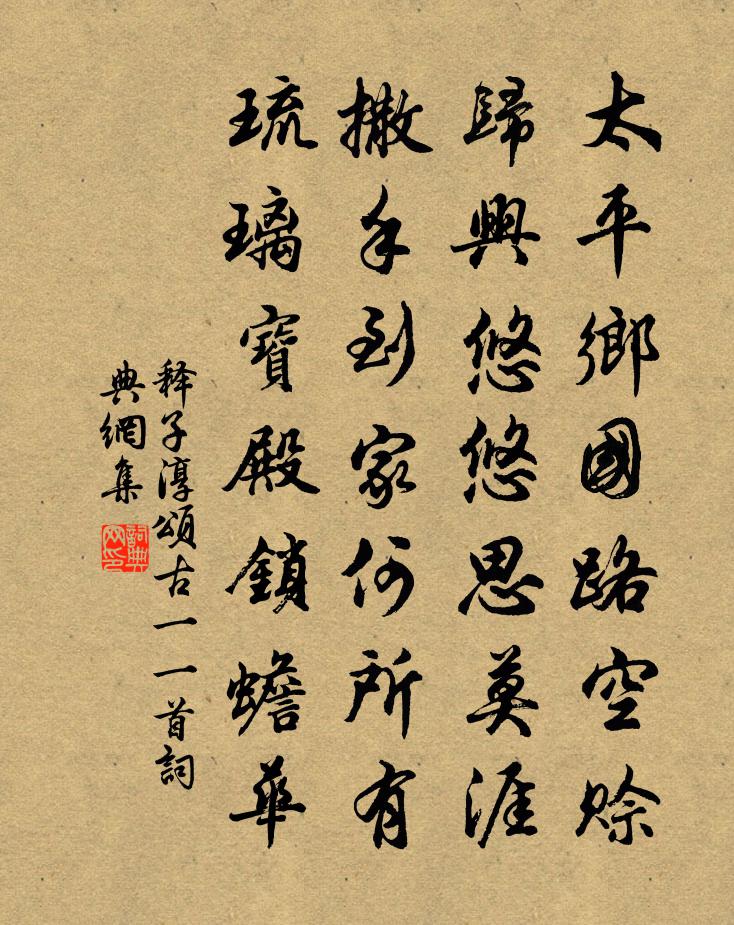 太平鄉國路空賒
歸興悠悠思莫涯
撒手到家何所有
琉璃寶殿鎖蟾華
释子淳頌古一一首詞
典網集
詞典
网印